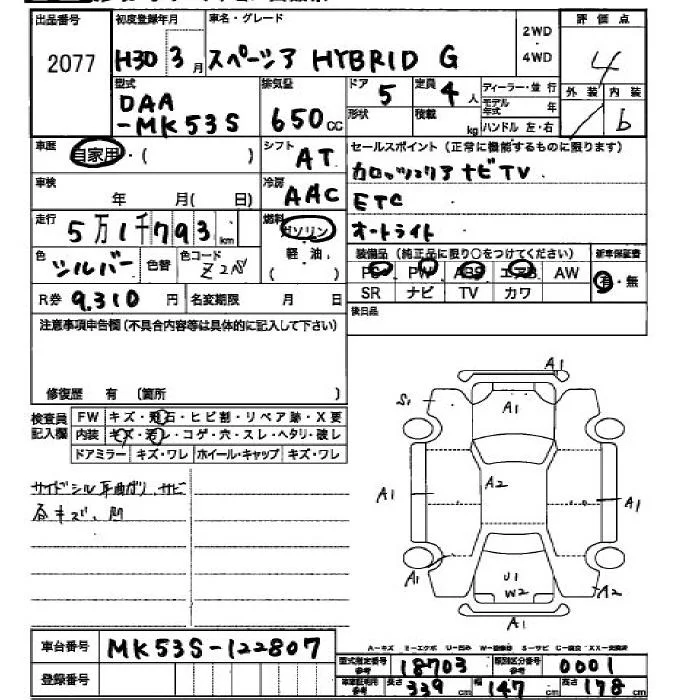 出品番号 初度登録年月 車名・グレード 2WD・4WD 評価点
2077 H30 3月 スペーシア HYBRID G 4
型式 排気量 ドア 定員 ディーラー・並行 外装 内装
DAA-MK53S 650cc 5 4人 モデル年式 年 b
形状 積載 kg ハンドル 左・右
車歴 自家用・( ) シフト AT セールスポイント(正常に機能するものに限ります)
カロッツェリアナビTV
車検 年 月( 日) 冷房 AAC ETC
走行 5万1千793km 燃料 ガソリン オートライト
軽油
( )
色 シルバー 色替 色コード Z2S 装備品(純正品に限り○をつけてください) 新車保証書
PS PW ABS エアB AW 有・無
R券 9,310円 名変期限 月 日 SR ナビ TV カワ
注意事項申告欄(不具合内容等は具体的に記入して下さい) 後日品
修復歴 有 (箇所 )
検査員記入欄 FW キズ・飛石・ヒビ割・リペア跡・X要
内装 キズ・汚レ・コゲ・穴・スレ・ヘタリ・破レ
ドアミラー キズ・ワレ ホイール・キャップ キズ・ワレ
サイドシル 曲がり、サビ
各キズ、凹
A1
S1 A1
A2
A1 A1
A1 U1 W2 A2
A1
車台番号 MK53S-122807
登録番号
A-キズ E-エクボ U-凹み S-サビ
型式指定番号 参考 18703 類別区分番号 参考 0001
参考 長さ 339cm 幅 147cm 高さ 178cm